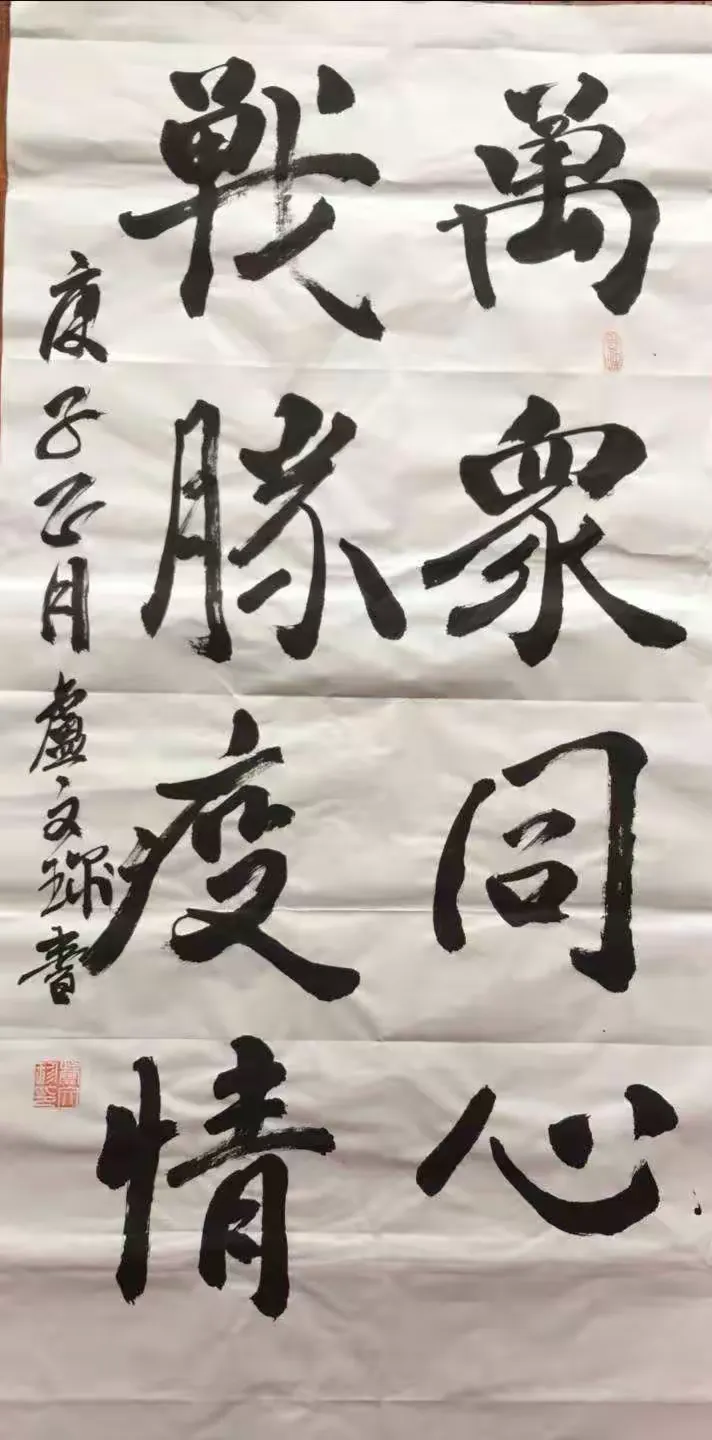 萬衆同心
戰勝疫情
庚子正月盧文珎書